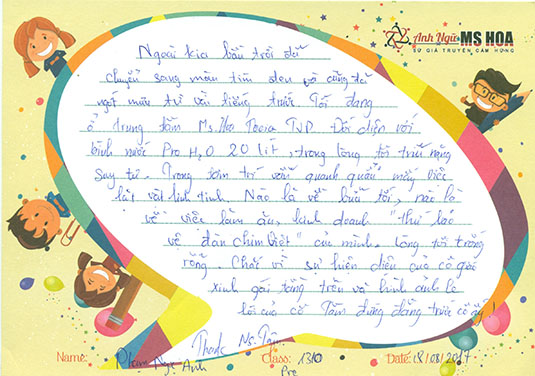 Anh Ngữ MS HOA
SỨ GIẢ TRUYỀN CẢM HỨNG
Ngoài kia bầu trời đã
chuyển sang màu tím đen và cũng đã
ngớt mưa từ vài tiếng trước. Tôi đang
ở trung tâm Ms Hoa Toeic TNP. Đối diện với
bình nước Pro H2O 20 lít, trong lòng tôi trĩu nặng
suy tư. Trong tâm trí vẫn quanh quẩn mấy việc
lặt vặt linh tinh. Nào là về bữa tối, nào là
về việc làm ăn, kinh doanh "thú
về đàn chim Việt" của mình. Lòng tôi trống
rỗng. Chắc vì sự hiện diện của cô gái
xinh gái tầng trên và hình ảnh
lôi của cô Tâm đứng đằng trước cô ấy!
Thank Ms. Tâm
Name: Phạm Ngọc Anh
Class: 1310 Pre
Date: 18/08/2017